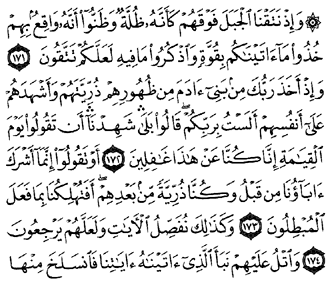 ۞ وَإِذْ نَتَقْنَا ٱلْجَبَلَ فَوْقَهُمْ كَأَنَّهُۥ ظُلَّةٌ وَظَنُّوٓا۟ أَنَّهُۥ وَاقِعٌۢ بِهِمْ
خُذُوا۟ مَآ ءَاتَيْنَٰكُم بِقُوَّةٍ وَٱذْكُرُوا۟ مَا فِيهِ لَعَلَّكُمْ تَتَّقُونَ ١٧١
وَإِذْ أَخَذَ رَبُّكَ مِنۢ بَنِىٓ ءَادَمَ مِن ظُهُورِهِمْ ذُرِّيَّتَهُمْ وَأَشْهَدَهُمْ
عَلَىٰٓ أَنفُسِهِمْ أَلَسْتُ بِرَبِّكُمْ ۖ قَالُوا۟ بَلَىٰ ۛ شَهِدْنَآ ۛ أَن تَقُولُوا۟ يَوْمَ
ٱلْقِيَٰمَةِ إِنَّا كُنَّا عَنْ هَٰذَا غَٰفِلِينَ ١٧٢ أَوْ تَقُولُوٓا۟ إِنَّمَآ أَشْرَكَ
ءَابَآؤُنَا مِن قَبْلُ وَكُنَّا ذُرِّيَّةً مِّنۢ بَعْدِهِمْ ۖ أَفَتُهْلِكُنَا بِمَا فَعَلَ
ٱلْمُبْطِلُونَ ١٧٣ وَكَذَٰلِكَ نُفَصِّلُ ٱلْءَايَٰتِ وَلَعَلَّهُمْ يَرْجِعُونَ
١٧٤ وَٱتْلُ عَلَيْهِمْ نَبَأَ ٱلَّذِىٓ ءَاتَيْنَٰهُ ءَايَٰتِنَا فَٱنسَلَخَ مِنْهَا